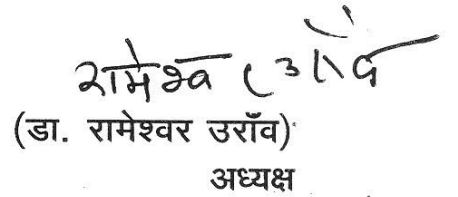 रामेश्वर उराँव
(डा. रामेश्वर उराँव)
अध्यक्ष